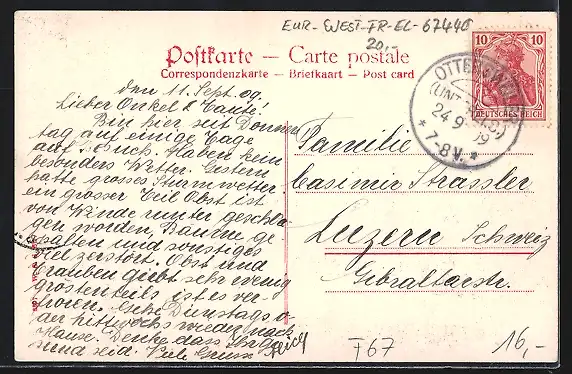 EUR-WEST-FR-EL-67440
20,-
Postkarte — Carte postale
Correspondenzkarte – Briefkaart – Post card
10 10
DEUTSCHES REICH
OTTERSWEILER
(UNT. ELS.)
24 9 09
* 7-8V. *
den 11. Sept. 09.
Lieber Onkel & Tante!
Bin hier seit Donners
tag auf einige Tage
auf Besuch. Haben kein
besonders Wetter. Gestern
hatte grosses Sturmwetter
ein grosser Teil Obst ist
vom Winde runter geschla-
gen worden, Bäume ge
spalten und sonstiges
viel zerstört. Obst und
Trauben giebt sehr wenig
grösstenteils ist es ver
froren. Gehe Dienstags o-
der Mittwochs wieder nach
Hause. Denke dass Ihr ge-
sund seid. Viele Grüsse
Familie
Casimir Strassler
Luzern Schweiz
Gibraltarstr.
F67
16,-